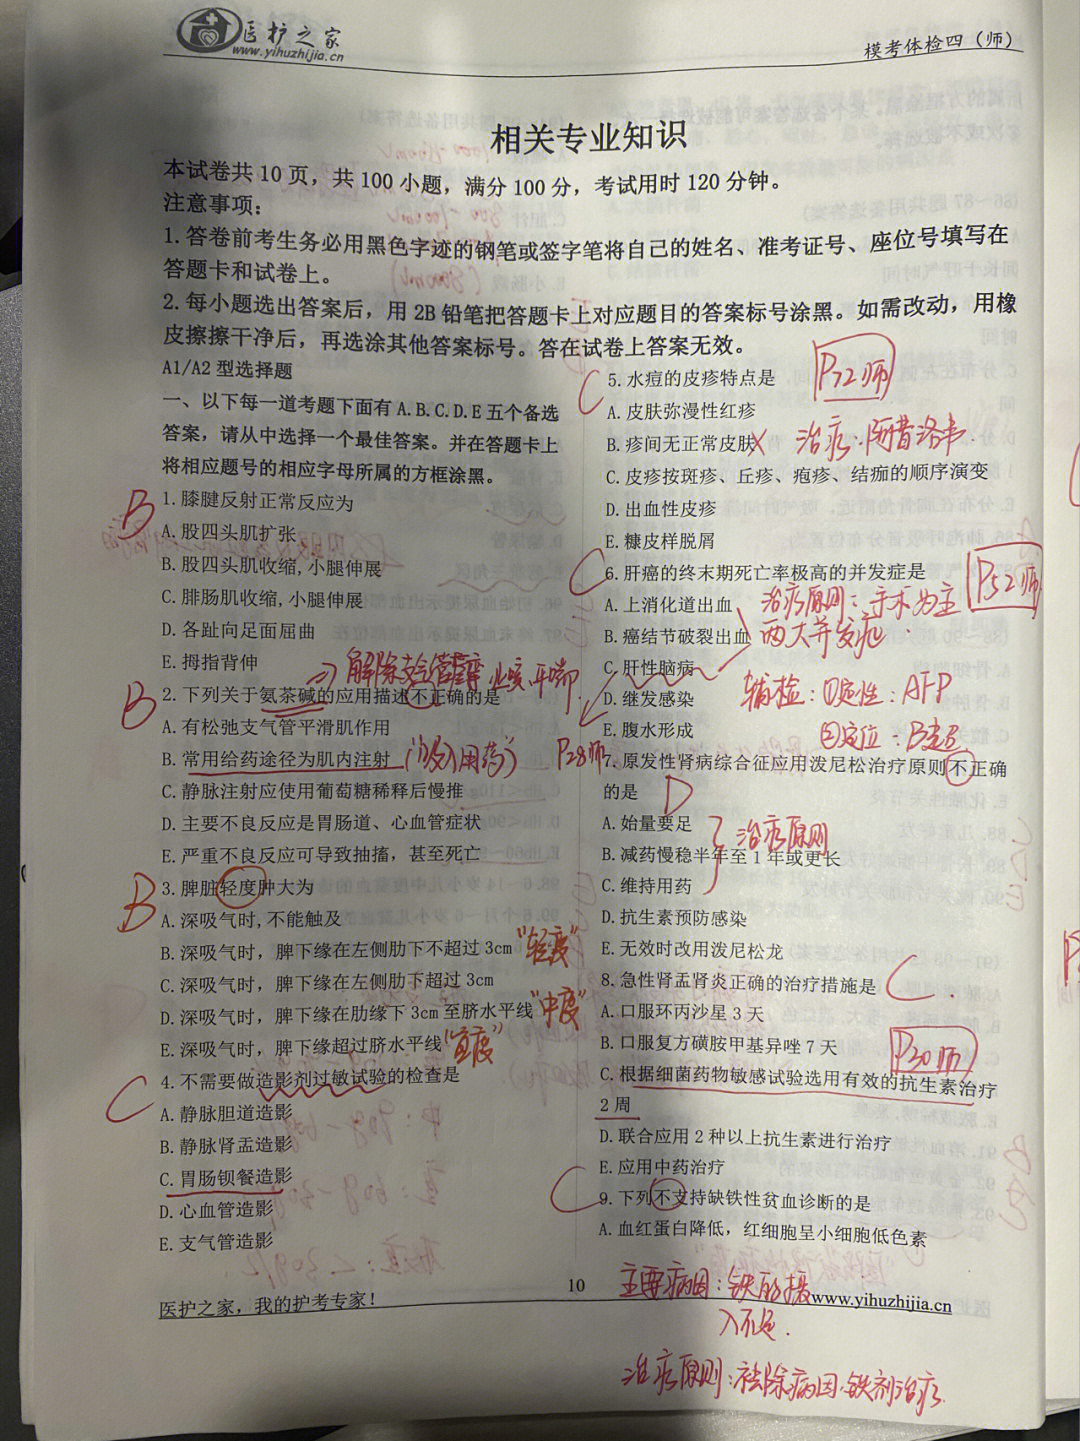 医护之家
www.yihuzhijia.cn
模考体检四（师）
相关专业知识
本试卷共 10 页，共 100 小题，满分 100 分，考试用时 120 分钟。
注意事项：
1. 答卷前考生务必用黑色字迹的钢笔或签字笔将自己的姓名、准考证号、座位号填写在
答题卡和试卷上。
2. 每小题选出答案后，用 2B 铅笔把答题卡上对应题目的答案标号涂黑。如需改动，用橡
皮擦擦干净后，再选涂其他答案标号。答在试卷上答案无效。
A1/A2 型选择题
一、以下每一道考题下面有 A.B.C.D.E 五个备选
答案，请从中选择一个最佳答案。并在答题卡上
将相应题号的相应字母所属的方框涂黑。
B
1. 膝腱反射正常反应为
A. 股四头肌扩张
B. 股四头肌收缩, 小腿伸展
C. 腓肠肌收缩, 小腿伸展
D. 各趾向足面屈曲
E. 拇指背伸
B
2. 下列关于氨茶碱的应用描述不正确的是
A. 有松弛支气管平滑肌作用
B. 常用给药途径为肌内注射 (吸入用药) P28师
C. 静脉注射应使用葡萄糖稀释后慢推
D. 主要不良反应是胃肠道、心血管症状
E. 严重不良反应可导致抽搐，甚至死亡
B
3. 脾脏轻度肿大为
A. 深吸气时, 不能触及
B. 深吸气时，脾下缘在左侧肋下不超过 3cm "轻度"
C. 深吸气时，脾下缘在左侧肋下超过 3cm
D. 深吸气时，脾下缘在肋缘下 3cm 至脐水平线 "中度"
E. 深吸气时，脾下缘超过脐水平线
C
4. 不需要做造影剂过敏试验的检查是
A. 静脉胆道造影
B. 静脉肾盂造影
C. 胃肠钡餐造影
D. 心血管造影
E. 支气管造影
C
5. 水痘的皮疹特点是 P72师
A. 皮肤弥漫性红疹
B. 疹间无正常皮肤 X 治疗：阿昔洛韦.
C. 皮疹按斑疹、丘疹、疱疹、结痂的顺序演变
D. 出血性皮疹
E. 糠皮样脱屑
C
6. 肝癌的终末期死亡率极高的并发症是 P52师
A. 上消化道出血 治疗原则：手术为主
B. 癌结节破裂出血 两大并发症
C. 肝性脑病
D. 继发感染 辅检：①定性：AFP
E. 腹水形成 ②定位：B超
7. 原发性肾病综合征应用泼尼松治疗原则不正确
的是 D
A. 始量要足 治疗原则
B. 减药慢稳半年至 1 年或更长
C. 维持用药
D. 抗生素预防感染
E. 无效时改用泼尼松龙
8. 急性肾盂肾炎正确的治疗措施是 C.
A. 口服环丙沙星 3 天
B. 口服复方磺胺甲基异唑 7 天 P30师
C. 根据细菌药物敏感试验选用有效的抗生素治疗
2 周
D. 联合应用 2 种以上抗生素进行治疗
E. 应用中药治疗
C
9. 下列不支持缺铁性贫血诊断的是
A. 血红蛋白降低，红细胞呈小细胞低色素
主要病因：铁的摄
入不足.
治疗原则：祛除病因.铁剂治疗
医护之家，我的护考专家！
10
www.yihuzhijia.cn